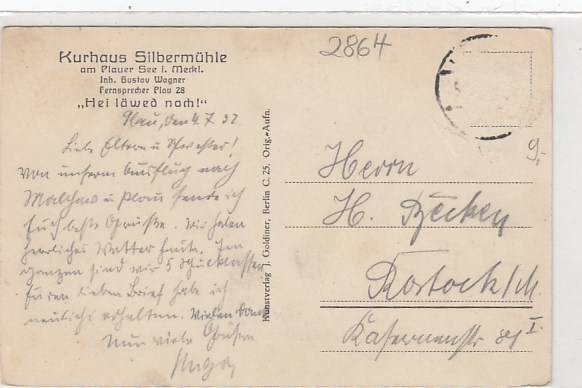 2864
Kurhaus Silbermühle
am Plauer See i. Meckl.
Inh. Gustav Wagner
Fernsprecher Plau 28
„Hei läwed noch!"
Plau, den 4.7.32
Liebe Eltern u. Schwester!
Von unserm Ausflug nach
Malchow u. Plau sende ich
Euch beste Grüße. Wir haben
herrliches Wetter heute. Im
ganzen sind wir 5
Euren lieben Brief habe ich
neulich erhalten. Vielen Dank
Nun viele Grüße
Kunstverlag J. Goldiner, Berlin C. 25. Orig.-Aufn.
9,-
Herrn
H.
Rostock i/M.
Kasernenstr I